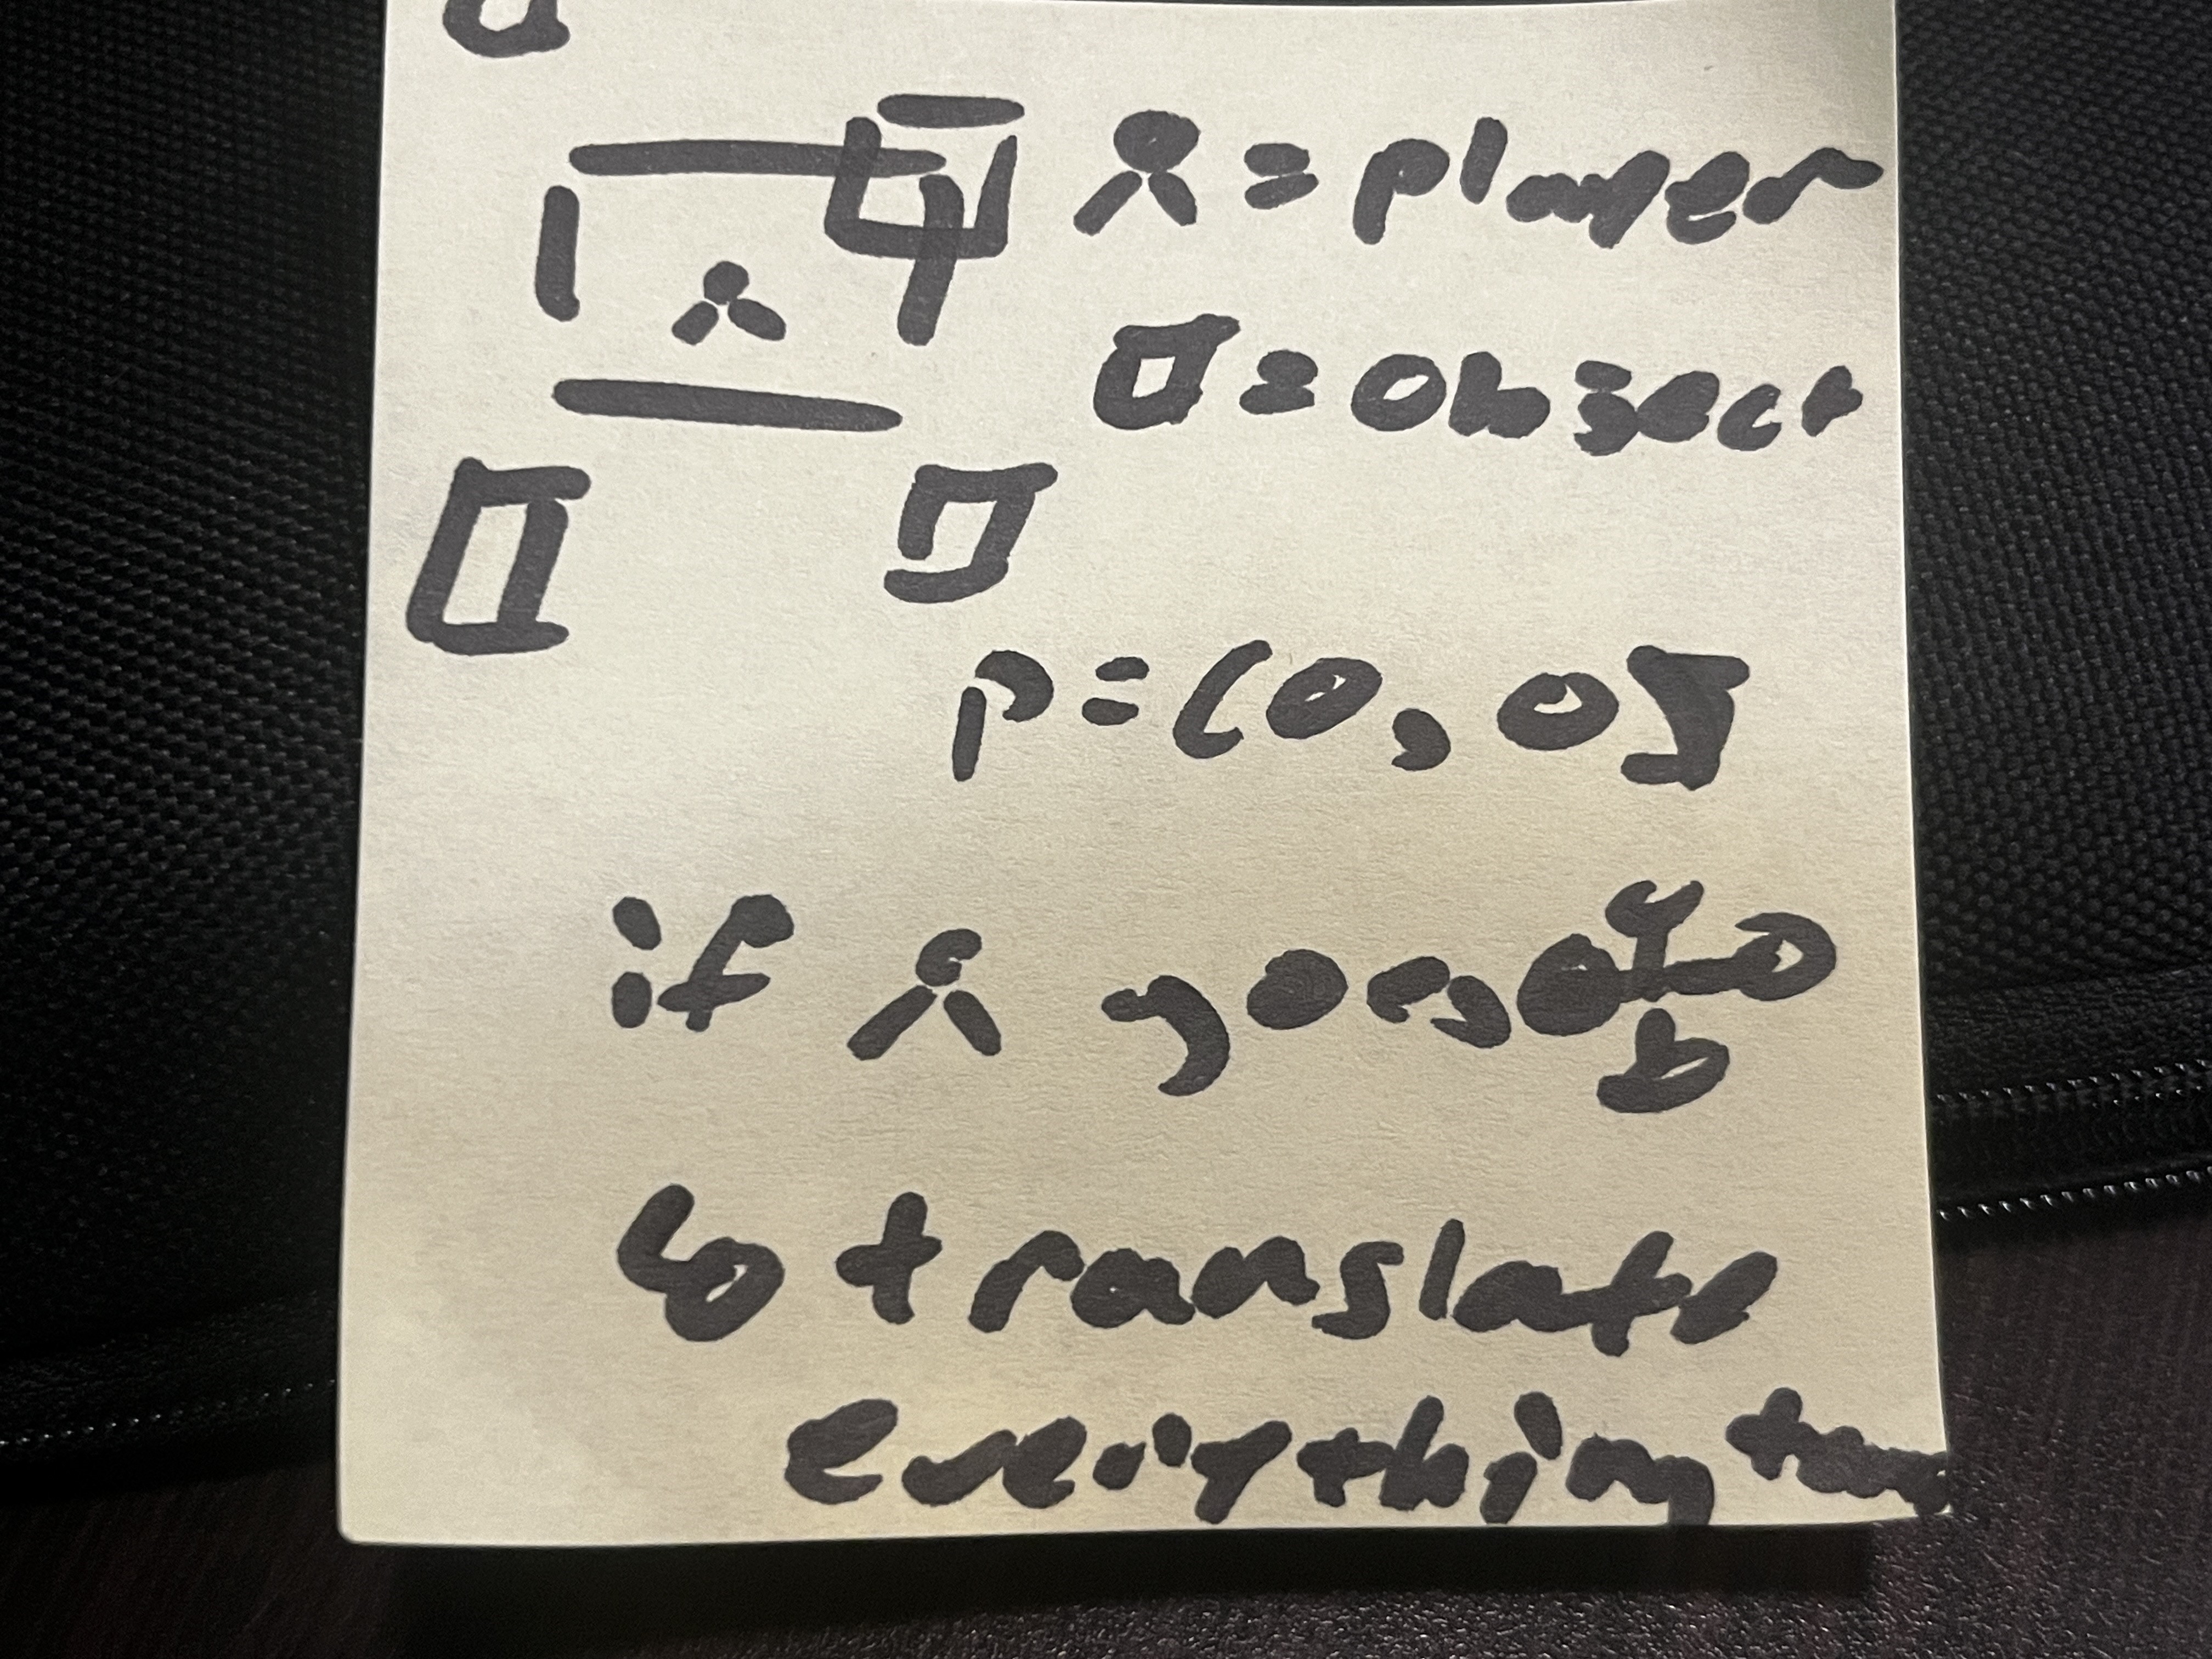 = player
= object
p = (0, 0]
if goes
translate
everything